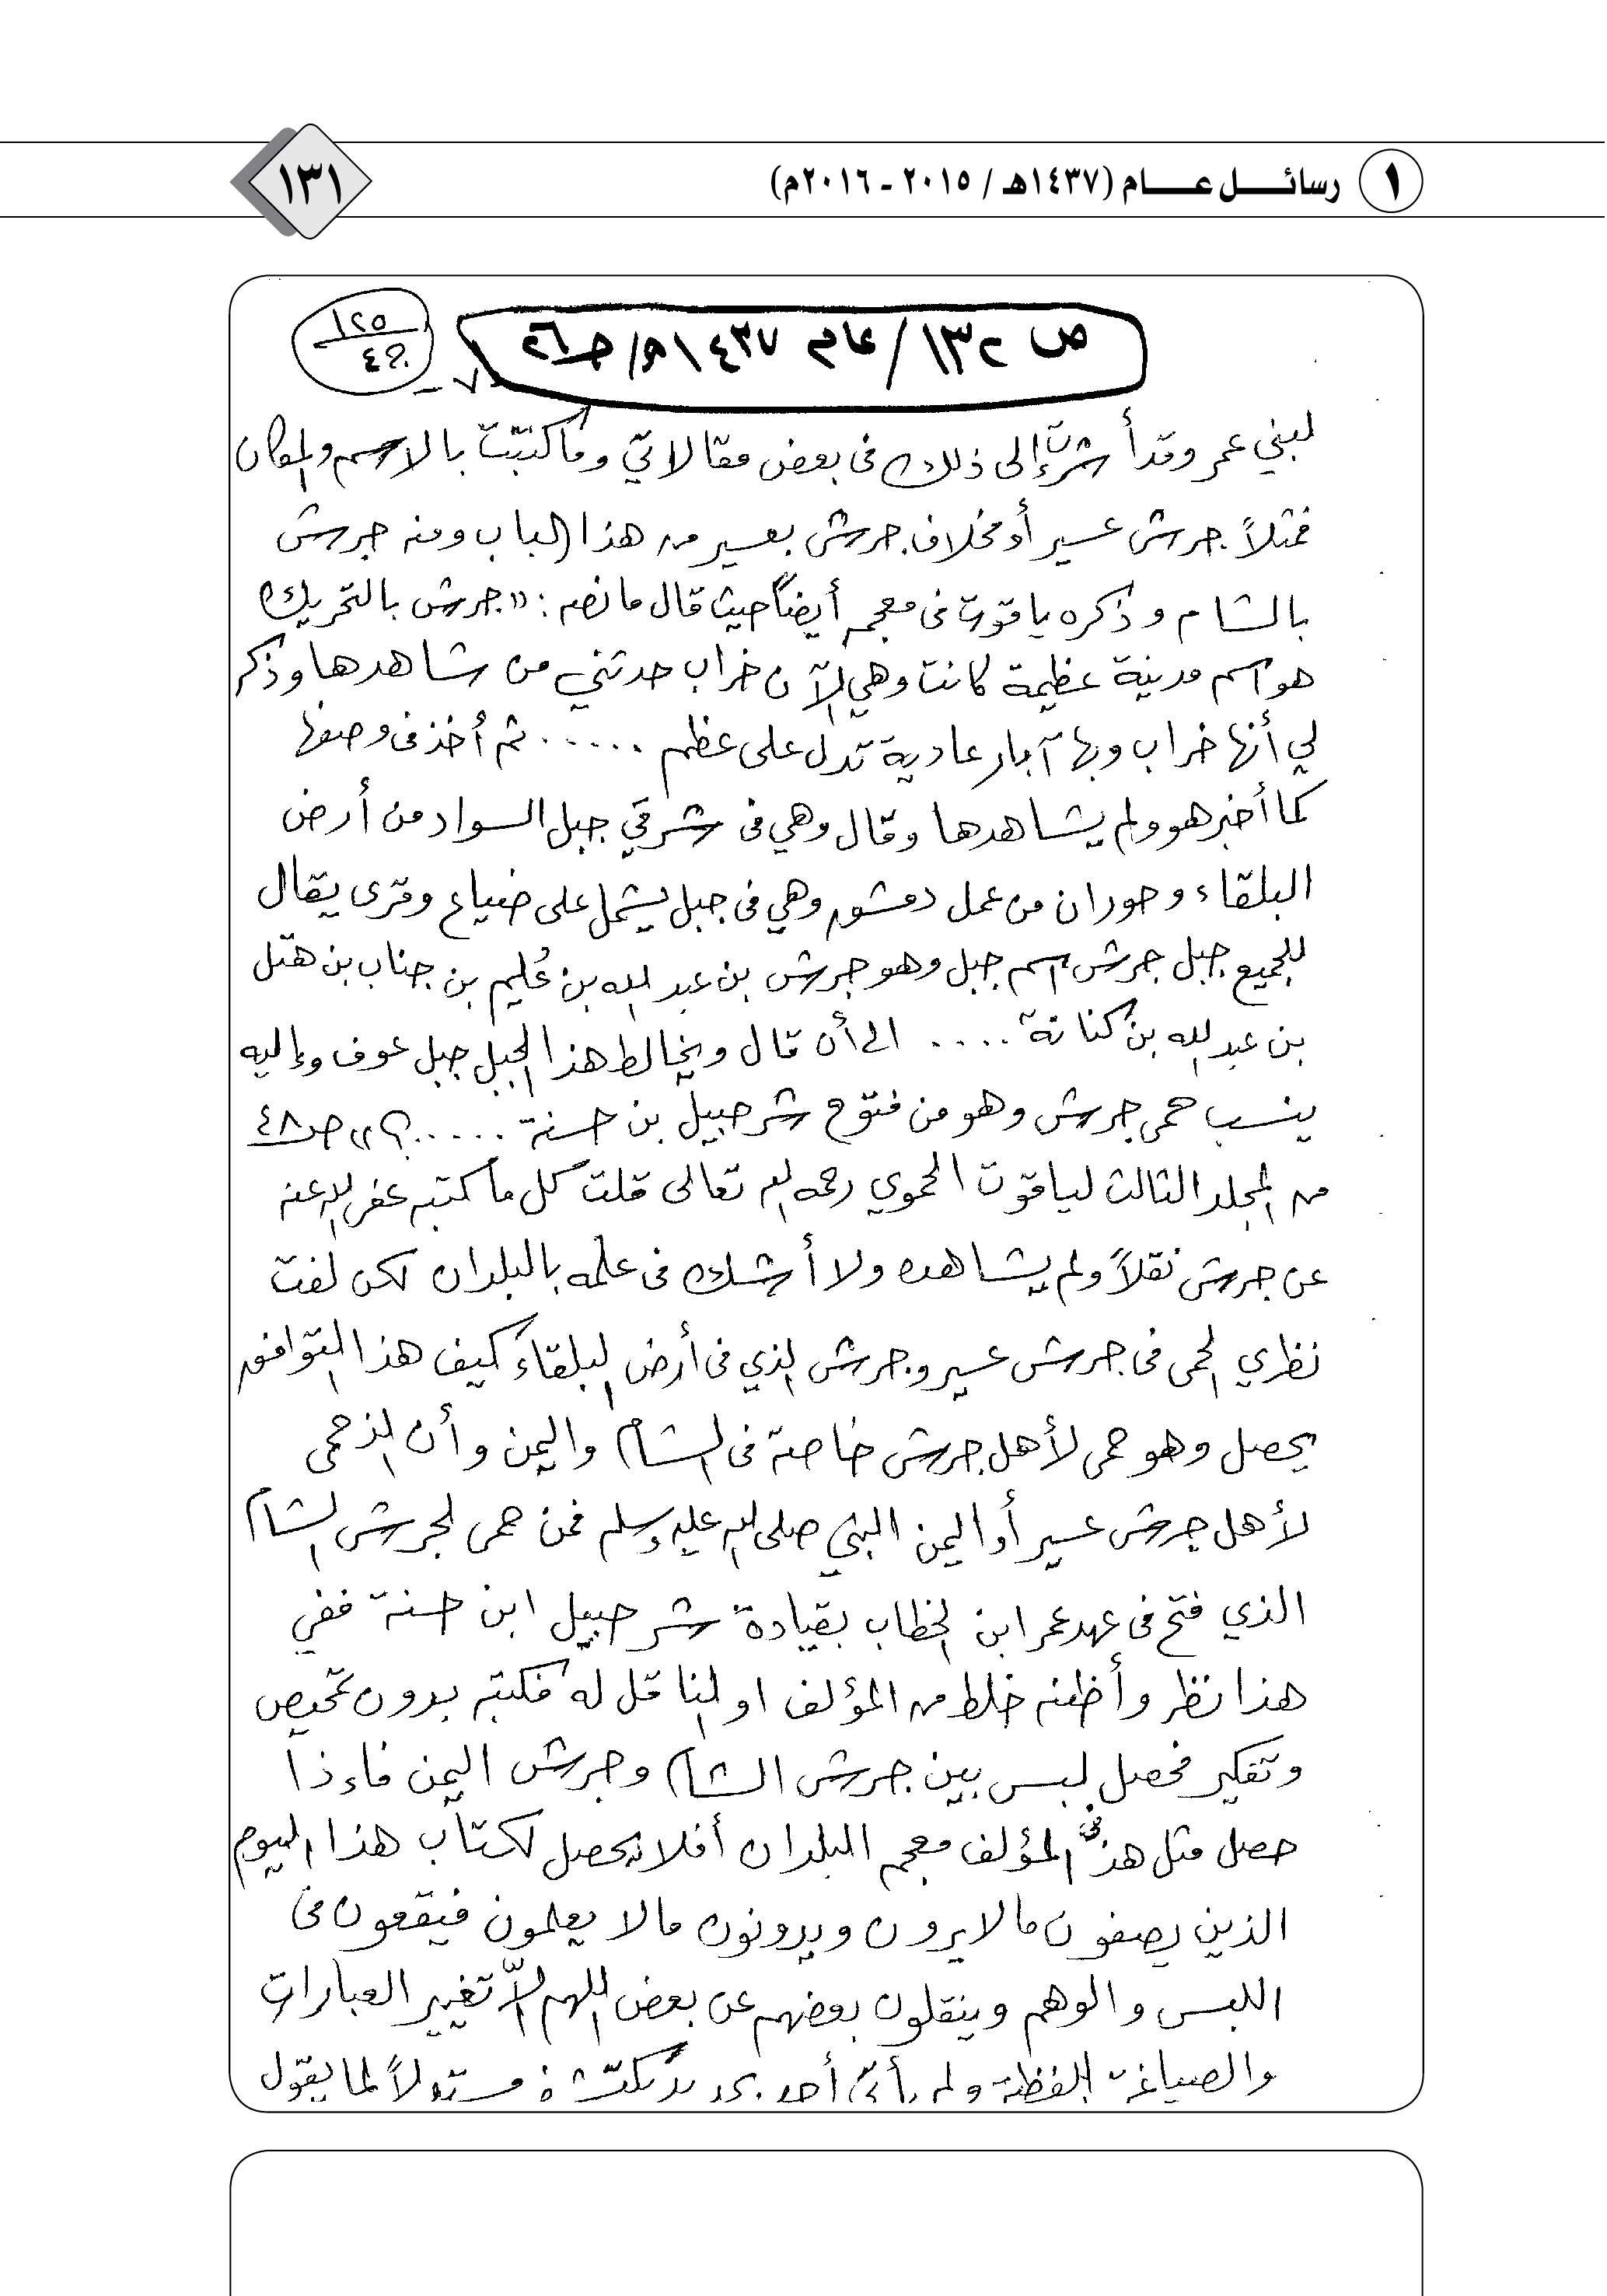 ١ رسائل عام (١٤٣٧هـ / ٢٠١٥ - ٢٠١٦م)
١٣١
ص ١٣٢ / عام ١٤٣٧هـ / جـ ٢٦
١٢٥
ج ٤
- ٧ -
لبني عمر وقد أشرت إلى ذلك فى بعض مقالاتي وما كتبت بالاسم والمكان
فمثلاً جرش عسير أو مخلاف جرش بعسير من هذا الباب ومنه جرش
بالشام وذكره ياقوت فى معجمه أيضاً حيث قال ما نصه : «جرش بالتحريك
هو اسم مدينة عظيمة كانت وهي الآن خراب حدثني من شاهدها وذكر
لي أنها خراب وبها آبار عادية تدل على عظم ..... ثم أخذ فى وصفها
كما أخبر هو ولم يشاهدها وقال وهي فى شرقي جبل السواد من أرض
البلقاء وحوران من عمل دمشق وهي فى جبل يشمل على ضياع وقرى يقال
للجميع جبل جرش اسم جبل وهو جرش بن عبد الله بن عُليم بن جناب بن هبل
بن عبد الله بن كنانة .... الى أن قال ويخالط هذا الجبل جبل عوف وإليه
ينسب حمى جرش وهو من فتوح شرحبيل بن حسنة .....؟» ص ٤٨
من المجلد الثالث لياقوت الحموي رحمه الله تعالى قلت كل ما كتبه عفى الله عنه
عن جرش نقلاً ولم يشاهده ولا أشك فى علمه بالبلدان لكن لفت
نظري الحمى فى جرش عسير وجرش الذي فى أرض البلقاء كيف هذا التوافق
يحصل وهو حمى لأهل جرش خاصة فى الشام واليمن وأن الذحمى
لأهل جرش عسير أو اليمن النبي صلى الله عليه وسلم فمن حمى لجرش الشام
الذي فتح فى عهد عمر ابن الخطاب بقيادة شرحبيل ابن حسنة ففي
هذا نظر وأظنه خلط من المؤلف او الناقل له فكتبه بدون تمحيص
وتفكير فحصل لبس بين جرش الشام وجرش اليمن فإذا
حصل مثل هذا فى المؤلف معجم البلدان أفلا يحصل لكتاب هذا اليوم
الذين يصفون ما لا يرون ويدونون مالا يعلمون فيقعون فى
اللبس والوهم وينقلون بعضهم عن بعض اللهم إلاّ تغيير العبارات
والصياغة اللفظية ولم يأتي أحد بحد مستدلاً لما يقول